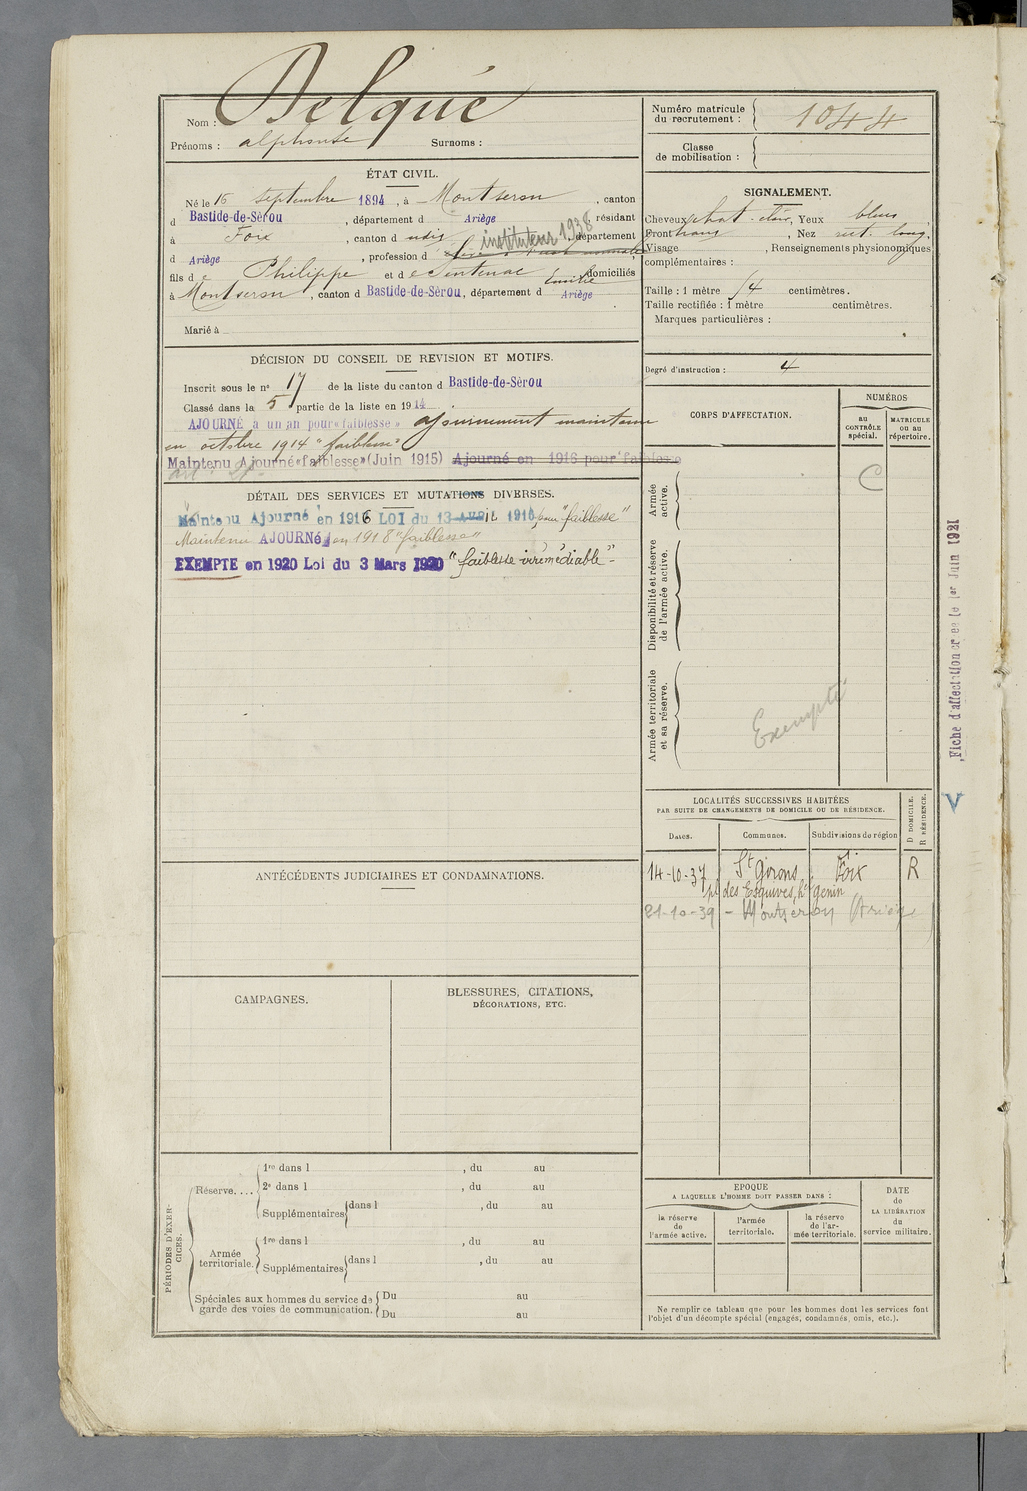 Nom : Delqué
Prénoms : alphonse Surnoms :
ÉTAT CIVIL.
Né le 16 septembre 1894, à Montseron, canton
d Bastide-de-Sérou, département d Ariège, résidant
à Foix, canton d udis, département
d Ariège, profession d instituteur 1938
fils de Philippe et de Sentenac Emilie domiciliés
à Montseron, canton d Bastide-de-Sérou, département d Ariège
Marié à
DÉCISION DU CONSEIL DE REVISION ET MOTIFS.
Inscrit sous le n° 17 de la liste du canton d Bastide-de-Sérou
Classé dans la 5 partie de la liste en 1914.
AJOURNÉ à un an pour « faiblesse » ajournement maintenu
en octobre 1914 "faiblesse"
Maintenu Ajourné « faiblesse » (Juin 1915) Ajourné en 1916 pour "faiblesse
DÉTAIL DES SERVICES ET MUTATIONS DIVERSES.
Maintenu Ajourné en 1916 LOI du 13 AVRIL 1916 pour "faiblesse"
Maintenu AJOURNÉ en 1918 "faiblesse"
EXEMPTE en 1920 Loi du 3 Mars 1920 "faiblesse irrémédiable"-
ANTÉCÉDENTS JUDICIAIRES ET CONDAMNATIONS.
CAMPAGNES.
BLESSURES, CITATIONS,
DÉCORATIONS, ETC.
PÉRIODES D'EXERCICES.
Réserve....
1re dans l , du au
2e dans l , du au
Supplémentaires dans l , du au
Armée territoriale.
1re dans l , du au
Supplémentaires dans l , du au
Spéciales aux hommes du service de
garde des voies de communication.
Du au
Du au
Numéro matricule
du recrutement : 1044
Classe
de mobilisation :
SIGNALEMENT.
Cheveux chat. clair, Yeux bleus,
Front , Nez rect. long,
Visage , Renseignements physionomiques
complémentaires :
Taille : 1 mètre 54 centimètres.
Taille rectifiée : 1 mètre centimètres.
Marques particulières :
Degré d'instruction : 4
CORPS D'AFFECTATION.
NUMÉROS
au
CONTRÔLE
spécial.
MATRICULE
ou au
répertoire.
Armée
active.
C
Disponibilité et réserve
de l'armée active.
Armée territoriale
et sa réserve.
Exempté
Fiche d'affectation créée le 1er Juin 1921
V
LOCALITÉS SUCCESSIVES HABITÉES
PAR SUITE DE CHANGEMENTS DE DOMICILE OU DE RÉSIDENCE.
D DOMICILE.
R RÉSIDENCE.
Dates. Communes. Subdivisions de région
14-10-37 St Girons Foix R
pl des
21-10-39 - Montseron (Ariège)
EPOQUE
A LAQUELLE L'HOMME DOIT PASSER DANS :
DATE
de
LA LIBÉRATION
du
service militaire.
la réserve
de
l'armée active.
l'armée
territoriale.
la réserve
de l'ar-
mée territoriale.
Ne remplir ce tableau que pour les hommes dont les services font
l'objet d'un décompte spécial (engagés, condamnés, omis, etc.).